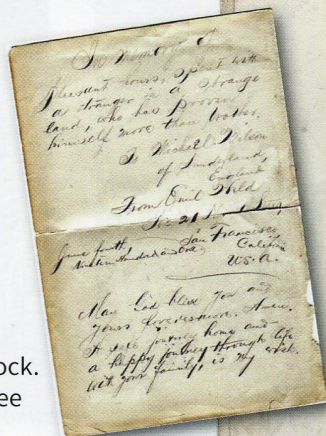 In Memory of
Pleasant hours, Spent with
as stranger in a Strange
land, who has proven
himself more than brother.
To Michael Wilson
of Sunderland,
England
From Emil Wild
San Francisco
June fourth,
Nineteen Hundred as One
U.S.A.
May God bless You and
Yours
A safe journey home and
a happy journey through life
with your family, is my wish.
ock.
ee